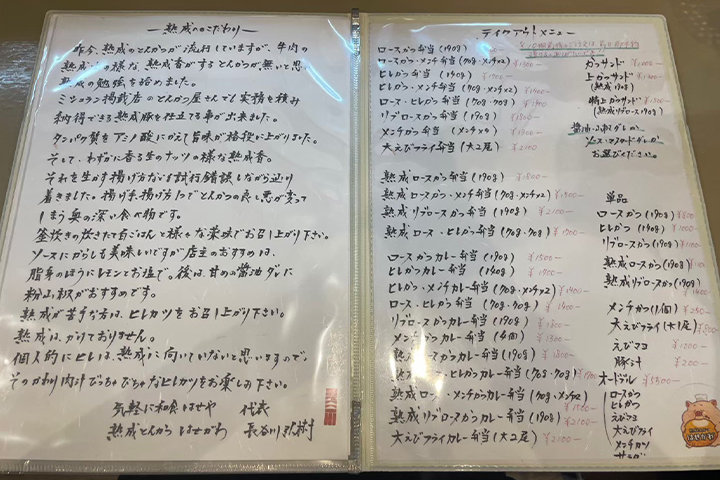 熟成へのこだわり
昨今、熟成のとんかつが流行していますが、牛肉の
熟成の様な、熟成香がするとんかつが無いと思い
熟成の勉強を始めました。
ミシュラン掲載店のとんかつ屋さんでも実務を積み
納得できる熟成豚を仕立てる事が出来ました。
タンパク質をアミノ酸にかえて旨味が格段に上がりました。
そして、わずかに香る生のナッツの様な熟成香。
それを生かす揚げ方などを試行錯誤しながら辿り
着きました。揚げ手、揚げ方1つでとんかつの良し悪が変って
しまう奥の深い食べ物です。
釜炊きの炊きたて白ごはんと様々な薬味でお召し上がり下さい。
ソースにからしも美味しいですが店主のおすすめは、
脂身のほうにレモンとお塩で。後は、甘めの醤油ダレに
粉山椒がおすすめです。
熟成が苦手な方は、ヒレカツをお召し上がり下さい。
熟成は、かけておりません。
個人的にヒレは、熟成に向いていないと思いますので、
そのかわり肉汁びちゃびちゃなヒレカツをお楽しみ下さい。
気軽に和食はせや 代表
熟成とんかつはせがわ 長谷川
テイクアウト!メニュー
ロースかつ弁当(190g)
ロースかつ・メンチかつ弁当(90g・メンチ×2) ¥1500-
ヒレかつ弁当(190g)
ヒレかつ・メンチかつ弁当(90g・メンチ×2) ¥1400-
ロース・ヒレかつ弁当(90g・90g) ¥1400-
リブロースかつ弁当(190g)
メンチかつ弁当(メンチ×4) ¥1300-
大えびフライ弁当(大2尾) ¥2100
熟成ロースかつ弁当(190g) ¥1500-
熟成ロースかつ・メンチ弁当(90g・メンチ×2)
熟成リブロースかつ弁当(190g) ¥2100-
熟成ロース・ヒレかつ弁当(90g・90g)
ロースかつカレー弁当(190g) ¥1500-
ヒレかつカレー弁当(190g) ¥1500-
ヒレかつ・メンチかつカレー弁当(90g・メンチ×2)
ロース・ヒレかつ弁当(90g・90g)
リブロースかつカレー弁当(190g)
メンチかつカレー弁当(4個) ¥1300-
熟成ロースかつカレー弁当(190g)
熟成ロース・ヒレかつカレー弁当(90g・90g)
熟成ロースかつカレー弁当(90g・メンチ×2)
熟成リブロースかつカレー弁当(190g) ¥2100-
大えびフライカレー弁当(大2尾) ¥2100-
カツサンド
上カツサンド
(熟成190g)
特上カツサンド
(熟成リブロース190g)
お選びください。
単品
ロースかつ(190g)
ヒレかつ(190g)
リブロースかつ(190g)
熟成ロースかつ(190g)
熟成リブロースかつ(190g)
メンチかつ(1個) ¥250-
大えびフライ(大1尾)
えびマヨ ¥1000-
豚汁 ¥200-
オードブル ¥5500-
ロースかつ
ヒレかつ
えびマヨ
大えびフライ
メンチカツ
サラダ